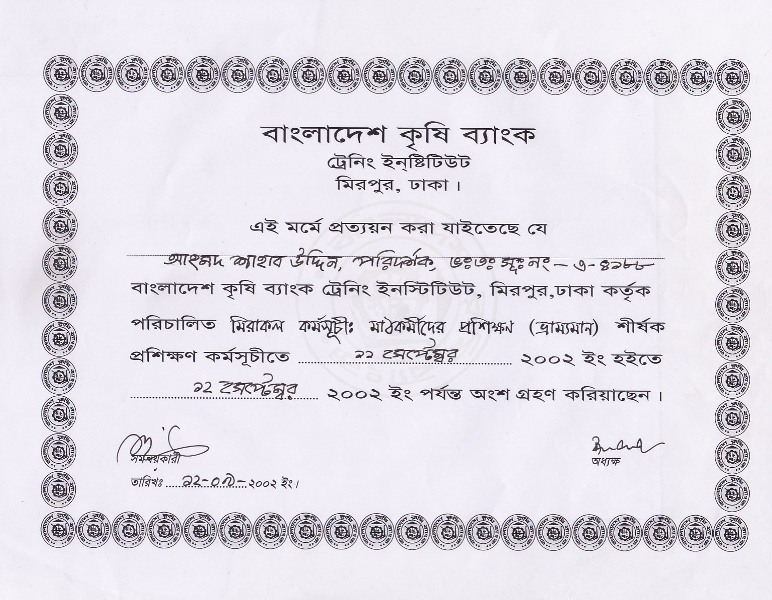 বাংলাদেশ কৃষি ব্যাংক
ট্রেনিং ইনষ্টিটিউট
মিরপুর, ঢাকা ।
এই মর্মে প্রত্যয়ন করা যাইতেছে যে
আহমদ শাহাব উদ্দিন, পরিদর্শক,
বাংলাদেশ কৃষি ব্যাংক ট্রেনিং ইনস্টিটিউট, মিরপুর,ঢাকা কর্তৃক
পরিচালিত মিরাকল কর্মসূচীঃ মাঠকর্মীদের প্রশিক্ষণ (ভ্রাম্যমান) শীর্ষক
প্রশিক্ষণ কর্মসূচীতে ১১ সেপ্টেম্বর ২০০২ ইং হইতে
১২ সেপ্টেম্বর ২০০২ ইং পর্যন্ত অংশ গ্রহণ করিয়াছেন ।
সমন্বয়কারী
অধ্যক্ষ
তারিখঃ ১২-০৯-২০০২ ইং।